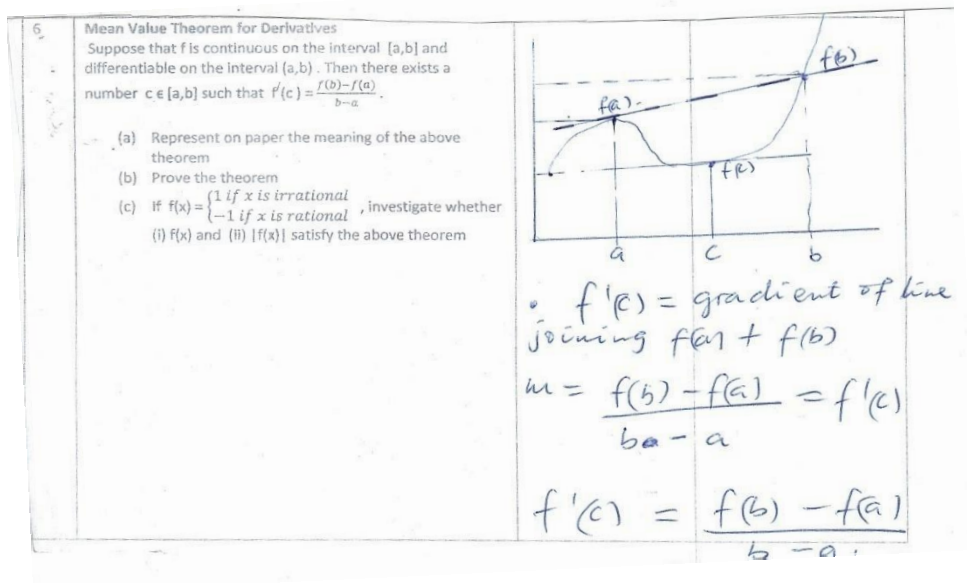 6
Mean Value Theorem for Derivatives
Suppose that f is continuous on the interval [a,b] and
differentiable on the interval (a,b) . Then there exists a
number c ϵ [a,b] such that f'(c) = f(b)−f(a) / b−a .
(a) Represent on paper the meaning of the above
theorem
(b) Prove the theorem
(c) If f(x) = {1 if x is irrational
{−1 if x is rational , investigate whether
(i) f(x) and (ii) |f(x)| satisfy the above theorem
f(b)
f(a)
f(c)
a c b
f'(c) = gradient of line
joining f(a) + f(b)
m = f(b) − f(a) / b − a = f'(c)
f'(c) = f(b) − f(a) / b − a .